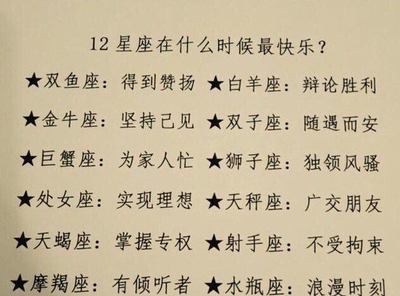 12星座在什么时候最快乐？
★双鱼座：得到赞扬 ★白羊座：辩论胜利
★金牛座：坚持己见 ★双子座：随遇而安
★巨蟹座：为家人忙 ★狮子座：独领风骚
★处女座：实现理想 ★天秤座：广交朋友
★天蝎座：掌握专权 ★射手座：不受拘束
★摩羯座：有倾听者 ★水瓶座：浪漫时刻